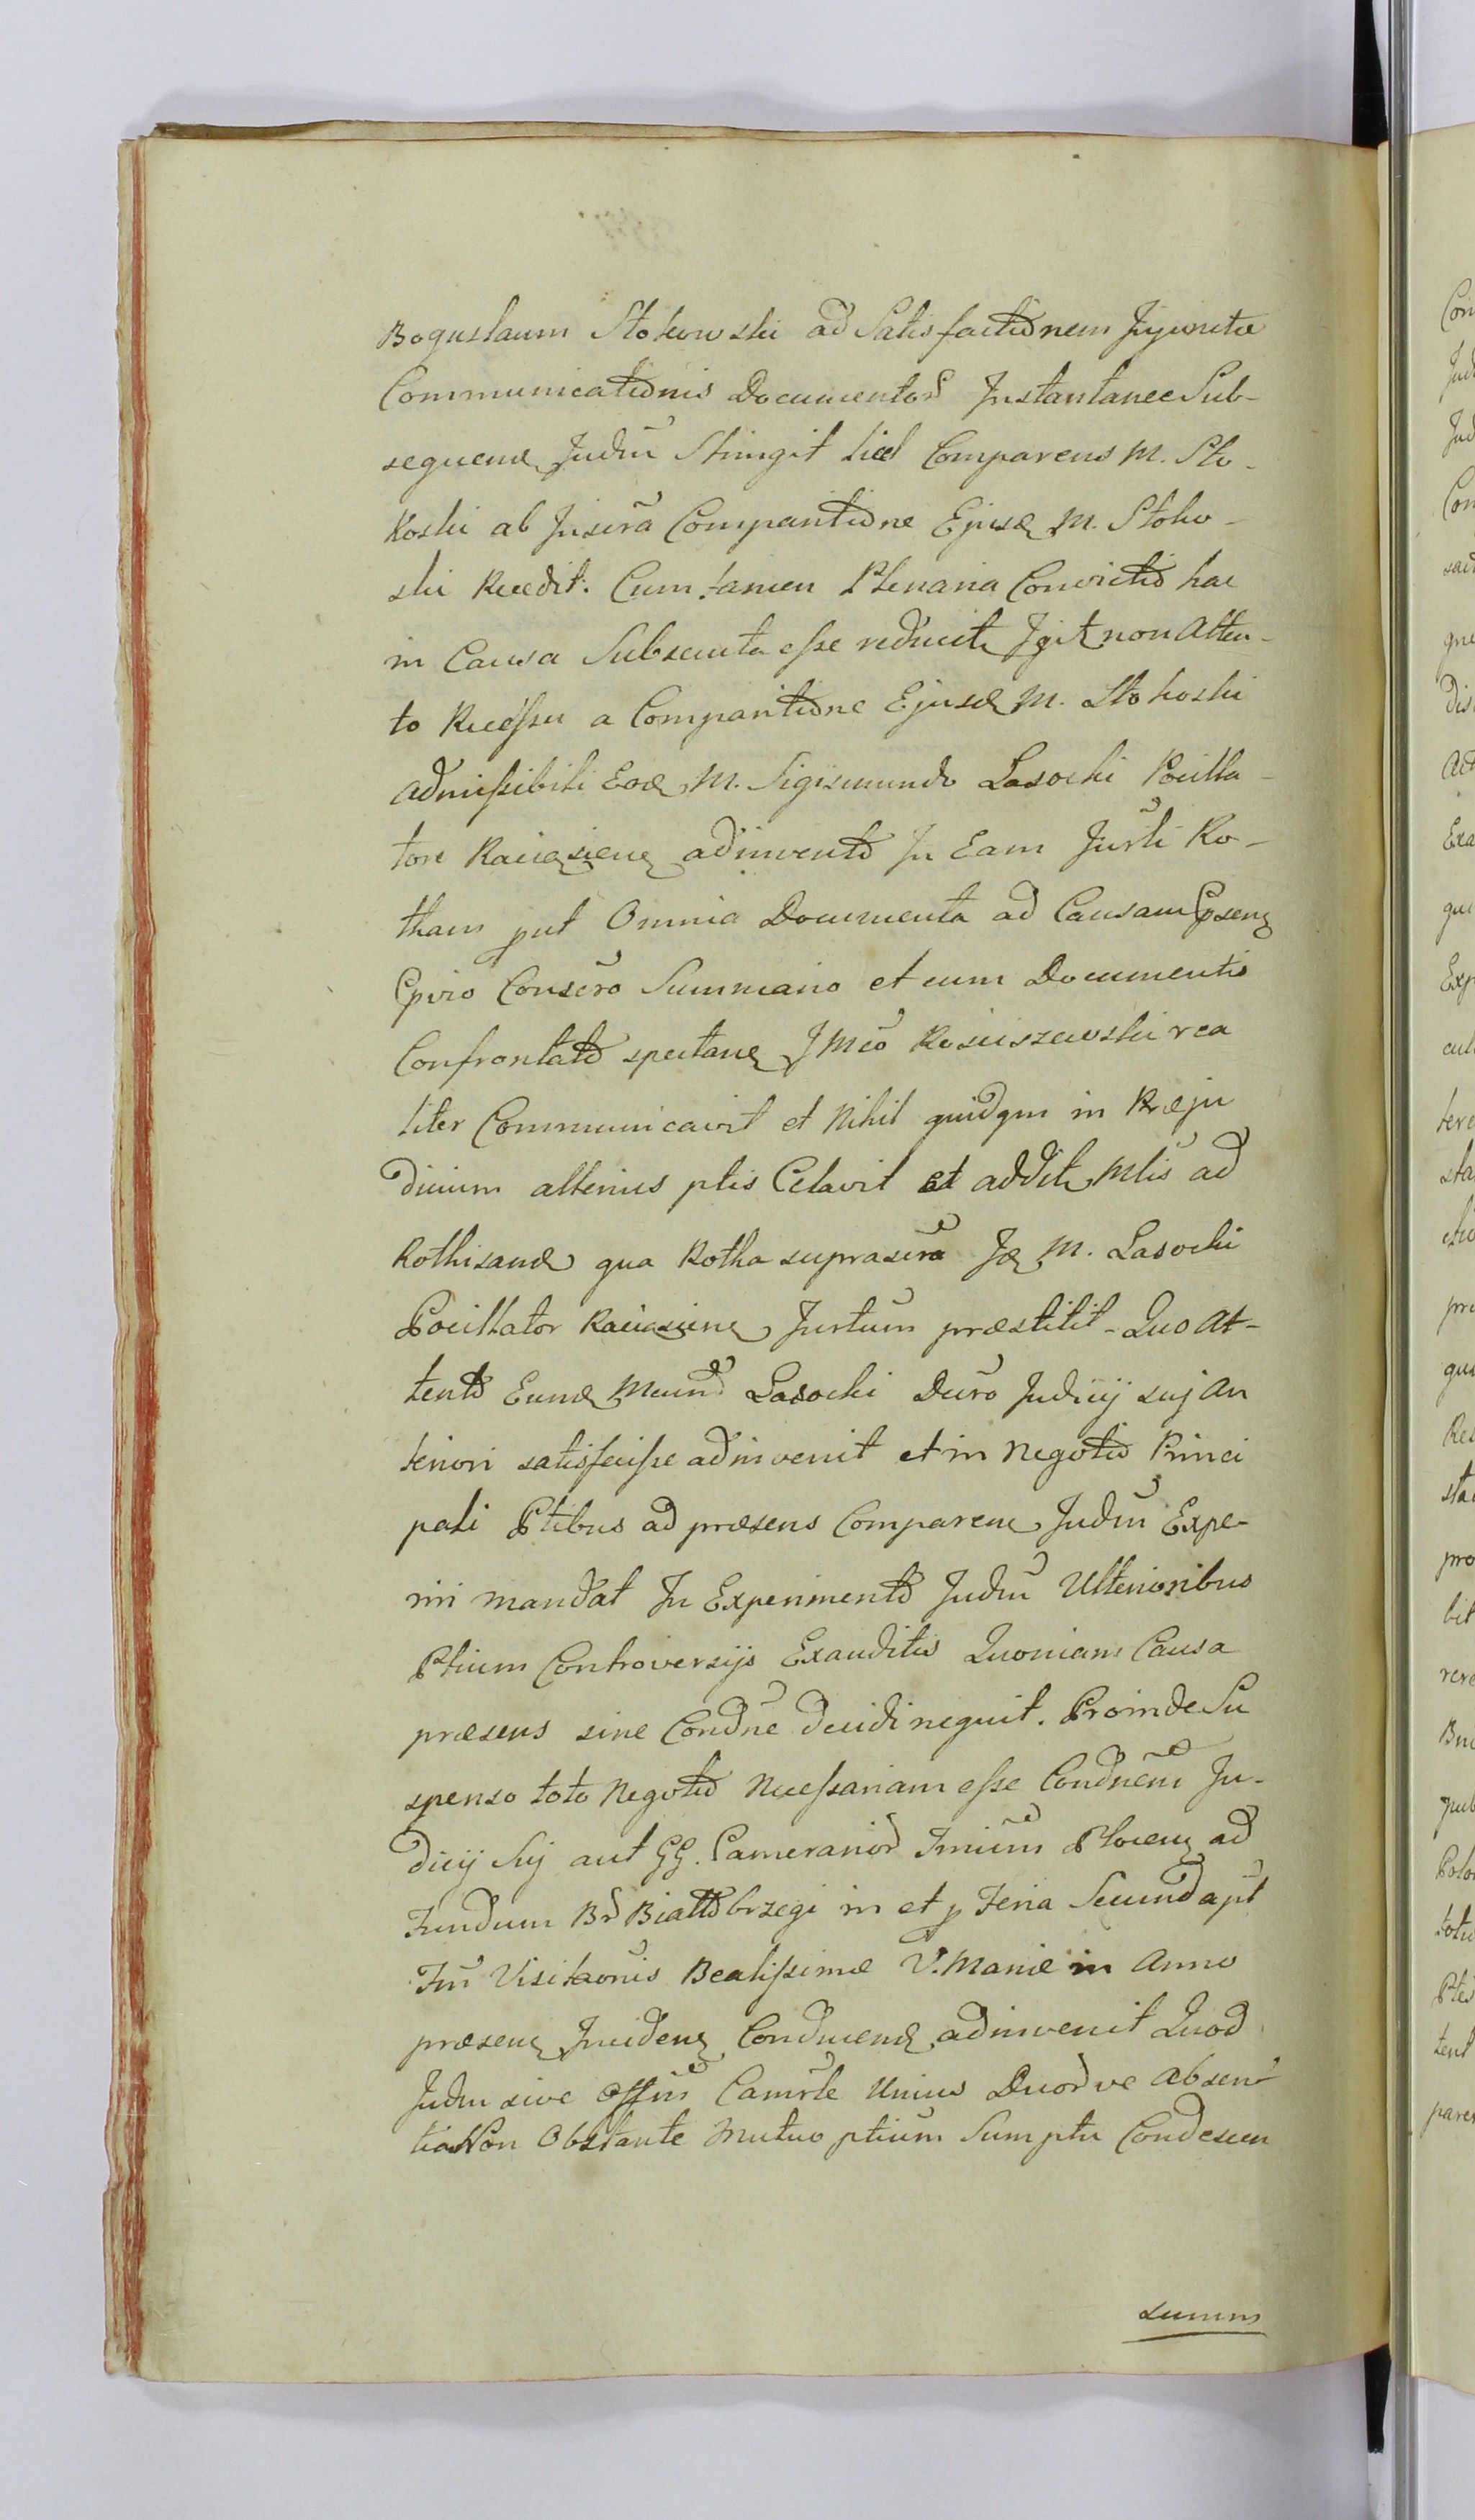 Boguslaum Stokowski ad Satisfactionem Injunctæ
Communicationis Documentor Instantanee Sub-
sequend Judm Stringit licet Comparens M. Sto-
koski ab Inserta Comparitione Ejusd M. Stoko-
ski Recedit. Cum tamen Plenaria Convictio hac
in Causa Subsecuta esse reducit Igit non Atten-
to Recessu a Comparitione Ejusd M. Stokoski
admissibili Eod M. Sigismundo Lasocki Pocilla-
tore Raciazien adinvento In Eam Jurti Ro-
tham put Omnia Documenta ad Causam Psen
Confrontato spectan Rosciszewski rea
liter Communicavit et Nihil quidqm in Præju
dicium alterius ptis Celavit et addit Mtis ad
Rothisand qua Rotha suprascra Id M. Lasocki
Pocillator Raciazien Jurtum præstitit - Quo At-
tento Eund Mcum Lasocki Decro Judicij suj An
teriori satisfecisse adinvenit et in Negotio Princi
pali Ptibus ad præsens Comparen Judm Expe-
riri mandat In Experimento Judm Ulterioribus
Ptium Controversijs Exauditis Quoniam Causa
præsens sine Condne decidi nequit. Proinde Su
spenso toto Negotio Necessariam esse Condnem Ju-
dicij Sij aut GG. Camerarior Trium Plocen ad
Fundum Br Białobrzegi in et p Feria Secunda pt
Ftm Visitaonis Beatissimæ V. Mariæ in Anno
præsen Inciden Conducend adinvenit Quod
Judm sive Offm Camrle Unius Duorve Absen
tia Non Obstante Mutuo ptium Sumptu Condescen
summ